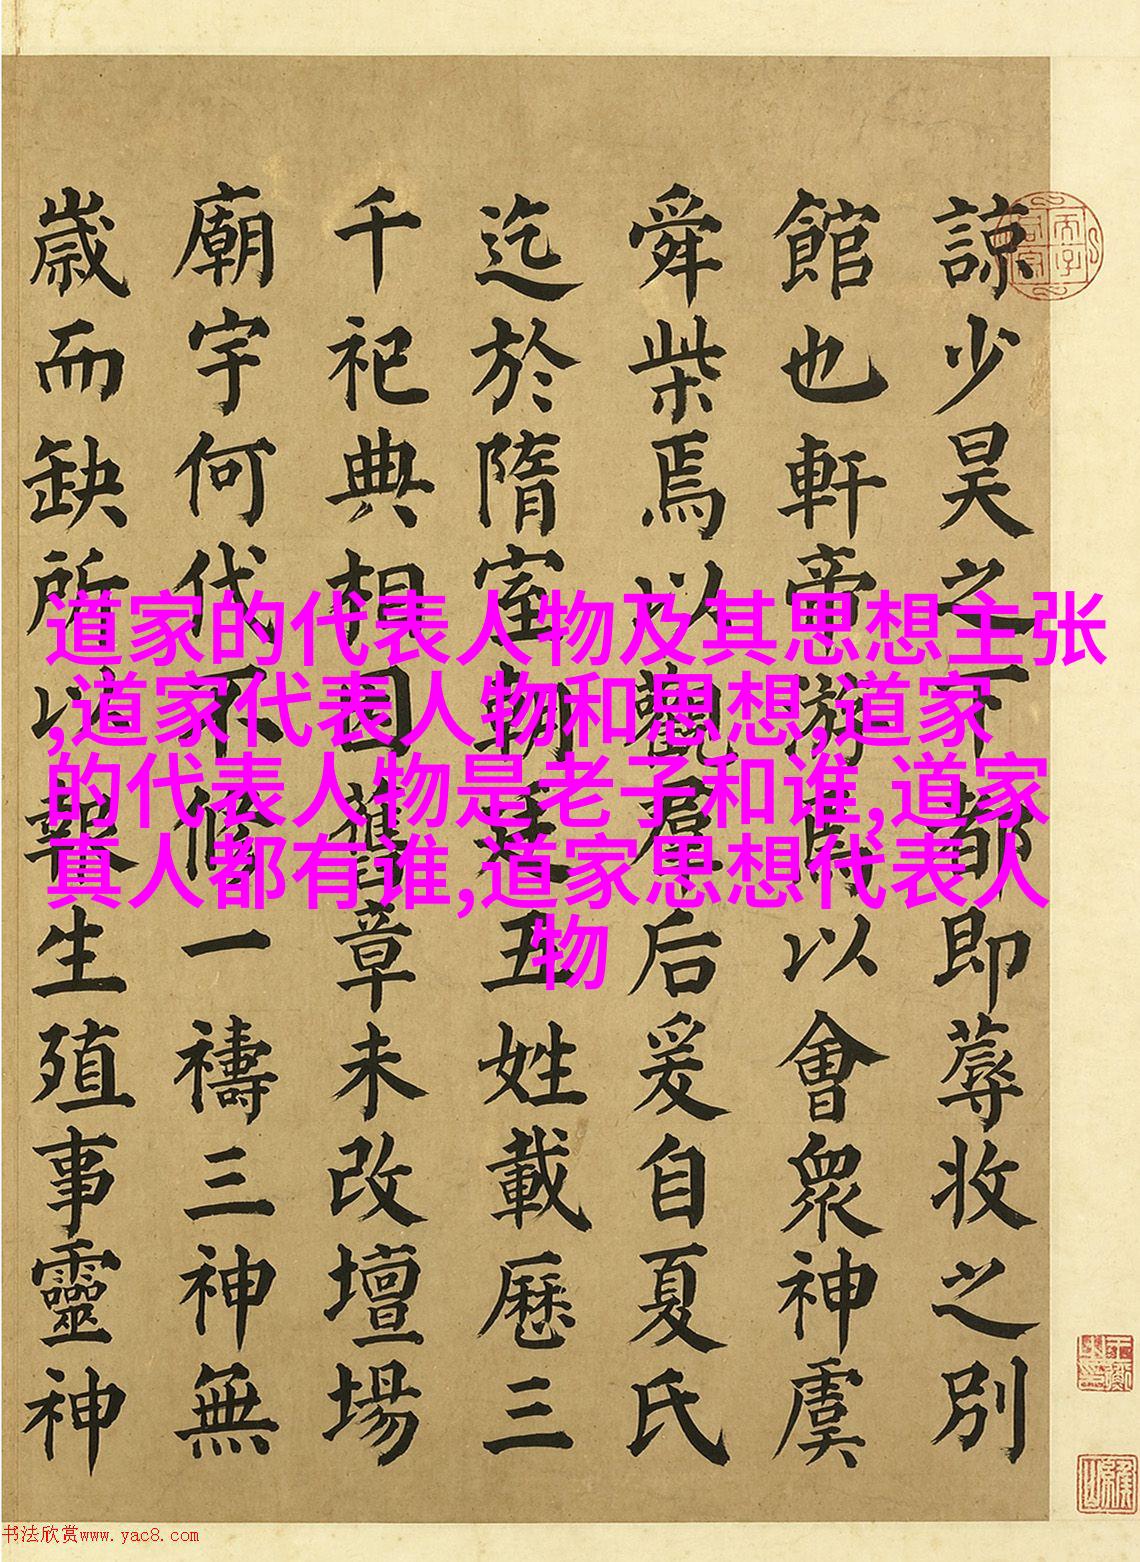 諒少昊之下都即蓐收之別
館也軒帝游焉以會衆神虞
舜柴焉以覲羣后爰自夏氏
迄於隋室朝五姓載歷三
千祀典相因舊章未改壇場
廟宇何代不修一禱三神無
歲而缺所以報生殖事靈神
道家的代表人物及其思想主张
,道家代表人物和思想,道家
的代表人物是老子和谁,道家
真人都有谁,道家思想代表人
物
书法欣赏www.yac8.com